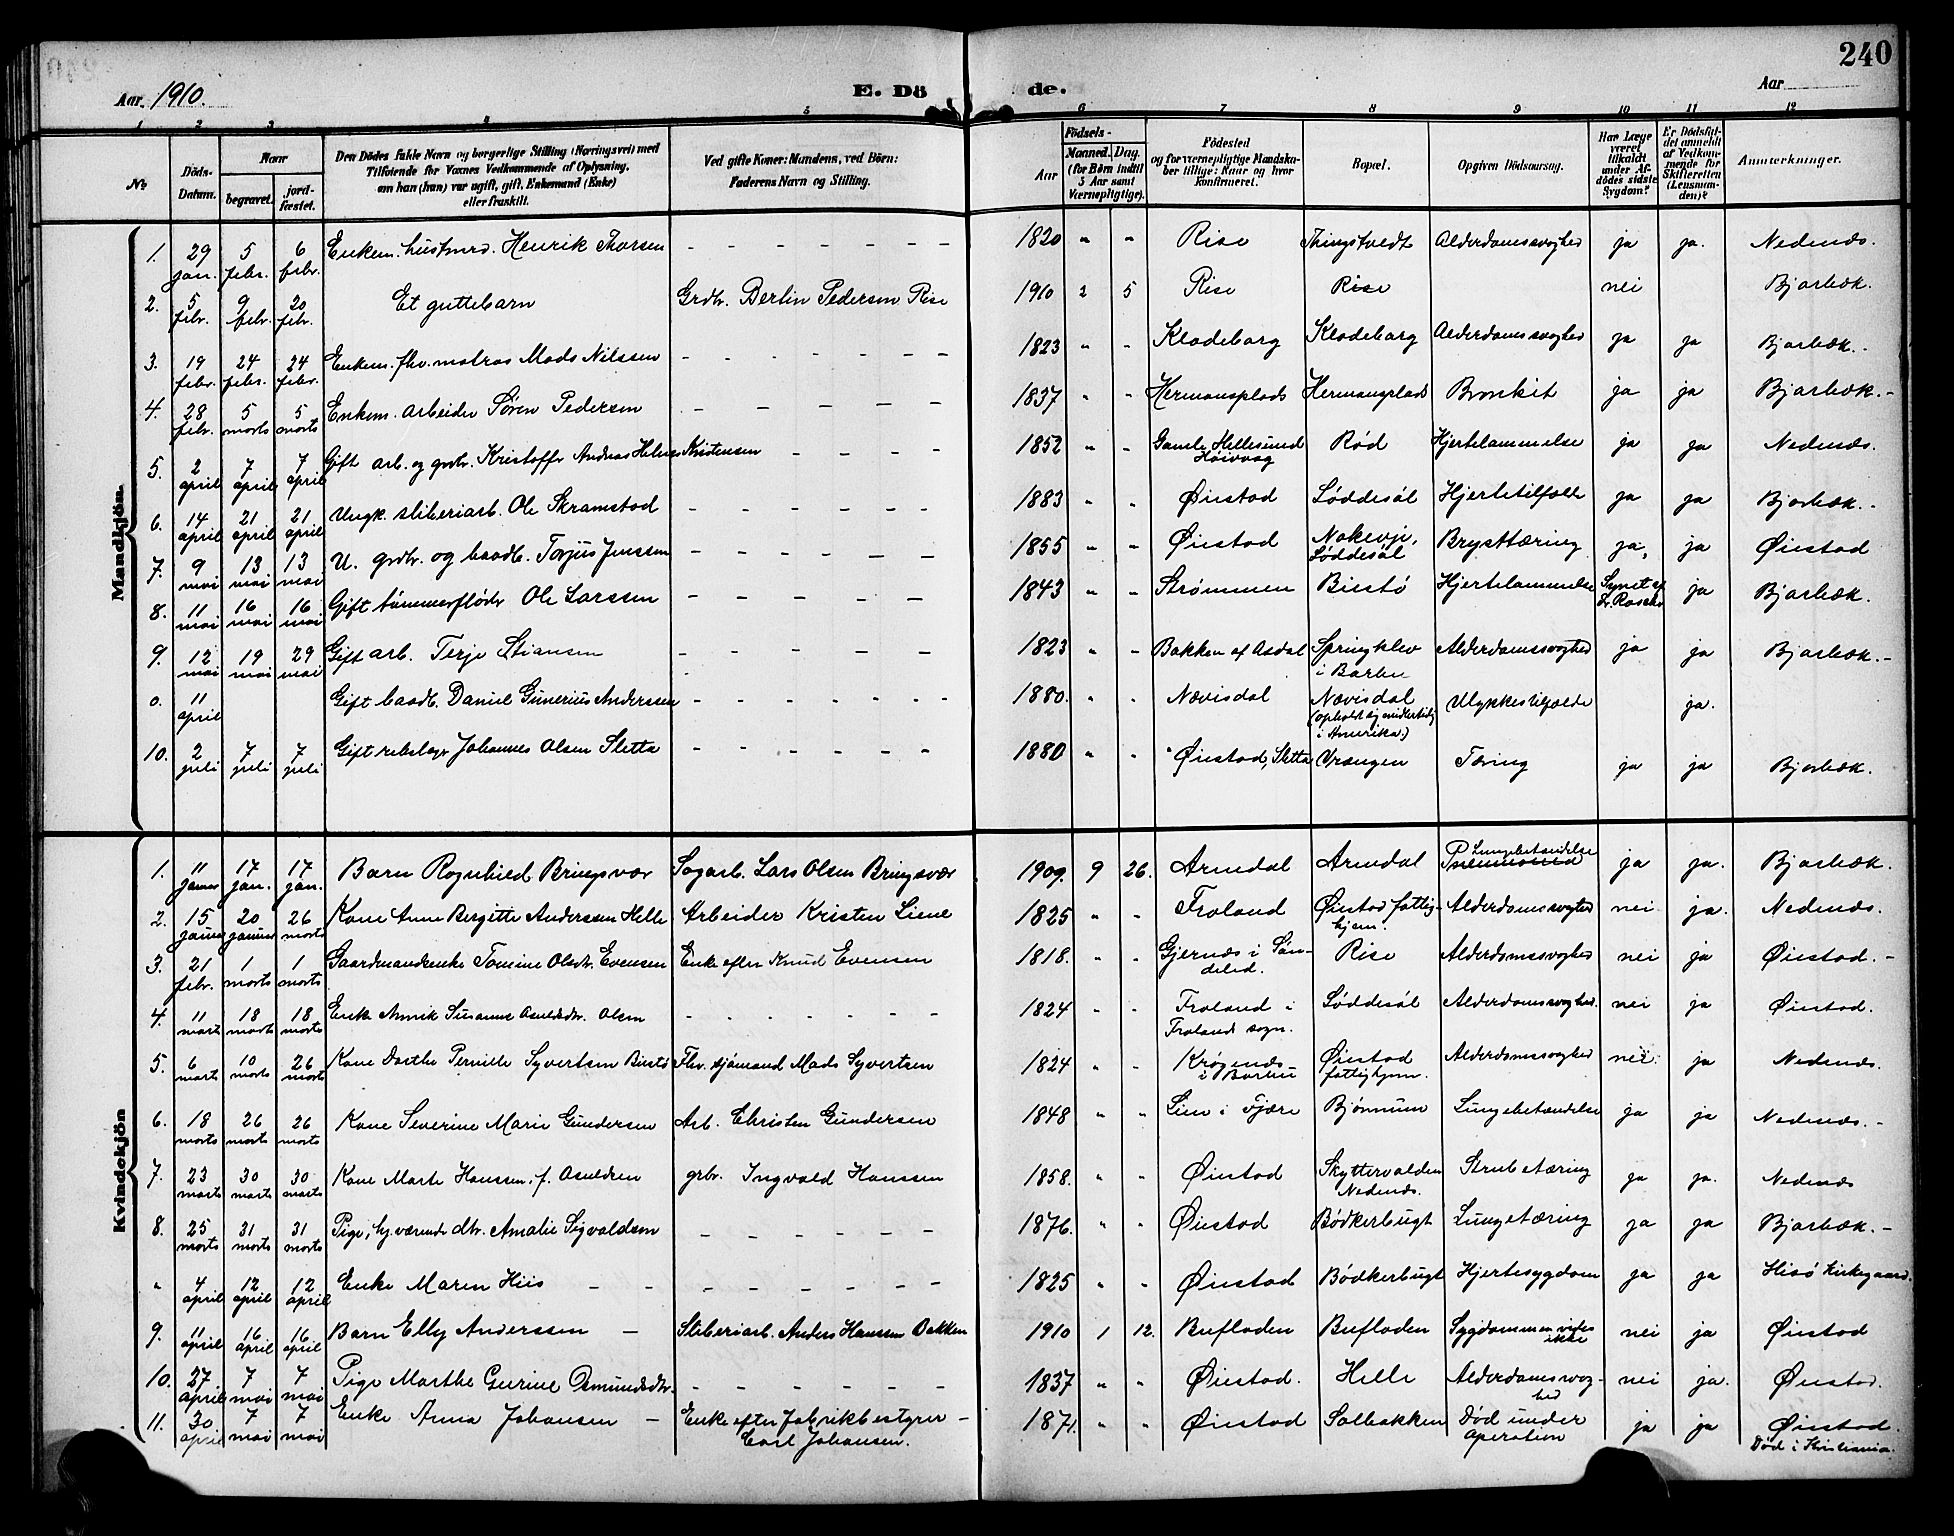 240
Aar 1910.
E. Dö de.
Aar
1 2 3 4 5 6 7 8 9 10 11 12
No
Döds-Datum.
Naar
begravet.
jord-fæstet.
Den Dödes fulde Navn og borgerlige Stilling (Næringsvei) med
Tilföiende for Voxnes Vedkommende af Oplysning,
om han (hun) var ugift, gift, Enkemand (Enke)
eller fraskilt.
Ved gifte Koner: Mandens, ved Börn:
Faderens Navn og Stilling.
Födsels-
Aar
Maaned. Dag.
(for Börn indtil
5 Aar samt
Værnepligtige).
Födested
og for værnepligtige Mandska-
ber tillige: Naar og hvor
konfirmeret.
Bopæl.
Opgiven Dödsaarsag.
Har Læge
været
tilkaldt
under Af-
dödes sidste
Sygdom?
Er Dödsfal-
det anmeldt
af Vedkom-
mende for
Skifteretten
(Lensman-
den)?
Anmerkninger.
Mandkjön.
1. 29 jan. 5 febr. 6 febr. Enkem. husmd. Henrik Thorsen - - - - - - - 1820 " " Rise Thingstvedt Alderdomssvaghed ja ja. Nedenæs.
2. 5 febr. 9 febr. 20 febr. Et guttebarn Grdbr. Bertin Pedersen Rise 1910 2 5 Rise Rise nei Bjorbæk.
3. 19 febr. 24 febr. 24 febr. Enkem. fhv. matros Mads Nilssen - - - - - - - 1823 " " Klodeborg Klodeborg Alderdomssvaghed ja ja Bjorbæk.
4. 28 febr. 5 marts 5 marts Enkem. arbeider Søren Pedersen - - - - - 1837 " " Hermansplads Hermansplads Bronkit ja ja Bjorbæk.-
5. 2 april 7 april 7 april Gift arb. og grdbr. Kristoffer Andreas Helmer Kristensen - - - - 1852 " " Gamle Hellesund Høivaag Rød Hjertelammelse ja ja Nedenæs.
6. 14 april 21 april 21 april Ungk. sliberiarb. Ole Skramstad - - - - - - 1883 " " Øiestad Løddesøl Hjertetilfælde ja ja Bjorbæk.
7. 9 mai 13 mai 13 mai U. grdbr. og baadb. Torjus Jenssen - - - - - 1855 " " Øiestad Nakevje, Løddesøl Brysttæring ja, ja Øiestad
8. 11 mai 16 mai 16 mai Gift tømmerfløder Ole Larssen - - - - - 1843 " " Strømmen Biestø Hjertelammelse Synet af Dr. ja Bjorbæk.
9. 12 mai 19 mai 29 mai Gift arb. Terje Stiansen - - - - - 1823 " " Bakken af Asdal Springklev i Barbu Alderdomssvaghed ja ja Bjorbæk.-
0. 11 april Gift baadb. Daniel Gunerius Anderssen - - - - - - 1880. " " Nævisdal Nævisdal (opholdt sig midlertidig i Amerika.) Ulykkestilfælde ja.
10. 2 juli 7 juli 7 juli Gift rebslager Johannes Olsen Sletta - - - - - - 1880 " " Øiestad, Sletta Vrængen Tæring ja ja Bjorbæk.
Kvindekjön
1. 11 januar 17 jan. 17 jan. Barn Ragnhild Bringsvær Sagarb. Lars Olsen Bringsvær 1909. 9 26. Arendal Arendal Lungebetændelse Pneumonia ja ja. Bjorbæk.
2. 15 januar 20 januar 26 marts Kone Anne Birgitte Anderssen Helle Arbeider Kristen Liene 1825 " " Froland Øiestad fattighjem. Alderdomssvaghed nei ja. Nedenæs.
3. 21 febr. 1 marts 1 marts Gaardmandsenke Tomine Olsdtr. Evensen Enke efter Knud Evensen 1818. " " Gjernæs i Søndeled. Rise Alderdomssvaghed nei ja Øiestad.-
4. 11 marts 18 marts 18 marts Enke Annik Susanne Asuldsdtr. Olsen - - - - - - 1824 " " Froland i Frolands sogn. Løddesøl Alderdomssvaghed. nei ja Øiestad.
5. 6 marts 10 marts 26 marts Kone Dorthe Pernille Syvertsen Biestø Fhv. sjømand Mads Syvertsen 1824 " " Krøgenæs i Barbu Øiestad fattighjem. Alderdomssvaghed nei. ja Nedenæs.
6. 18 marts 26 marts 26 marts Kone Severine Marie Gundersen Arb. Christen Gundersen 1848 " " Lien i Fjære Bjønnum Lungebetændelse ja ja Nedenæs.-
7. 23 marts 30 marts 30 marts Kone Marte Hanssen, f. Asuldsen grbr. Ingvald Hanssen 1858. " " Øiestad Skyttervolden Nedenæs. Strubetæring ja ja. Nedenæs
8. 25 marts 31 marts 31 marts Pige, hj.værende dtr. Amalie Sigvaldsen - - - - - - 1876. " " Øiestad Bødkerbugt Lungetæring ja ja Bjorbæk.-
" 4 april 12 april 12 april Enke Maren Hiis - - - - - - - - 1825 " " Øiestad Bødkerbugt Hjertesygdom ja ja Hisø kirkegaard.
9. 11 april 16 april 16 april Barn Elly Anderssen - Sliberiarb. Anders Hanssen Bakken 1910 1 12. Bufladen Bufladen Sygdommen vides ikke nei ja Øiestad
10. 27 april 7 mai 7 mai Pige Marthe Gurine Osmundsdtr. - - - - - - 1837 " " Øiestad. Helle Alderdomssvaghed nei ja. Øiestad.
11. 30 april 7 mai 7 mai Enke Anna Johansen - Enke efter Fabrikbestyrer - Carl Johansen. 1871. " " Øiestad Solbakken Død under operation ja ja Øiestad. Død i Kristiania.